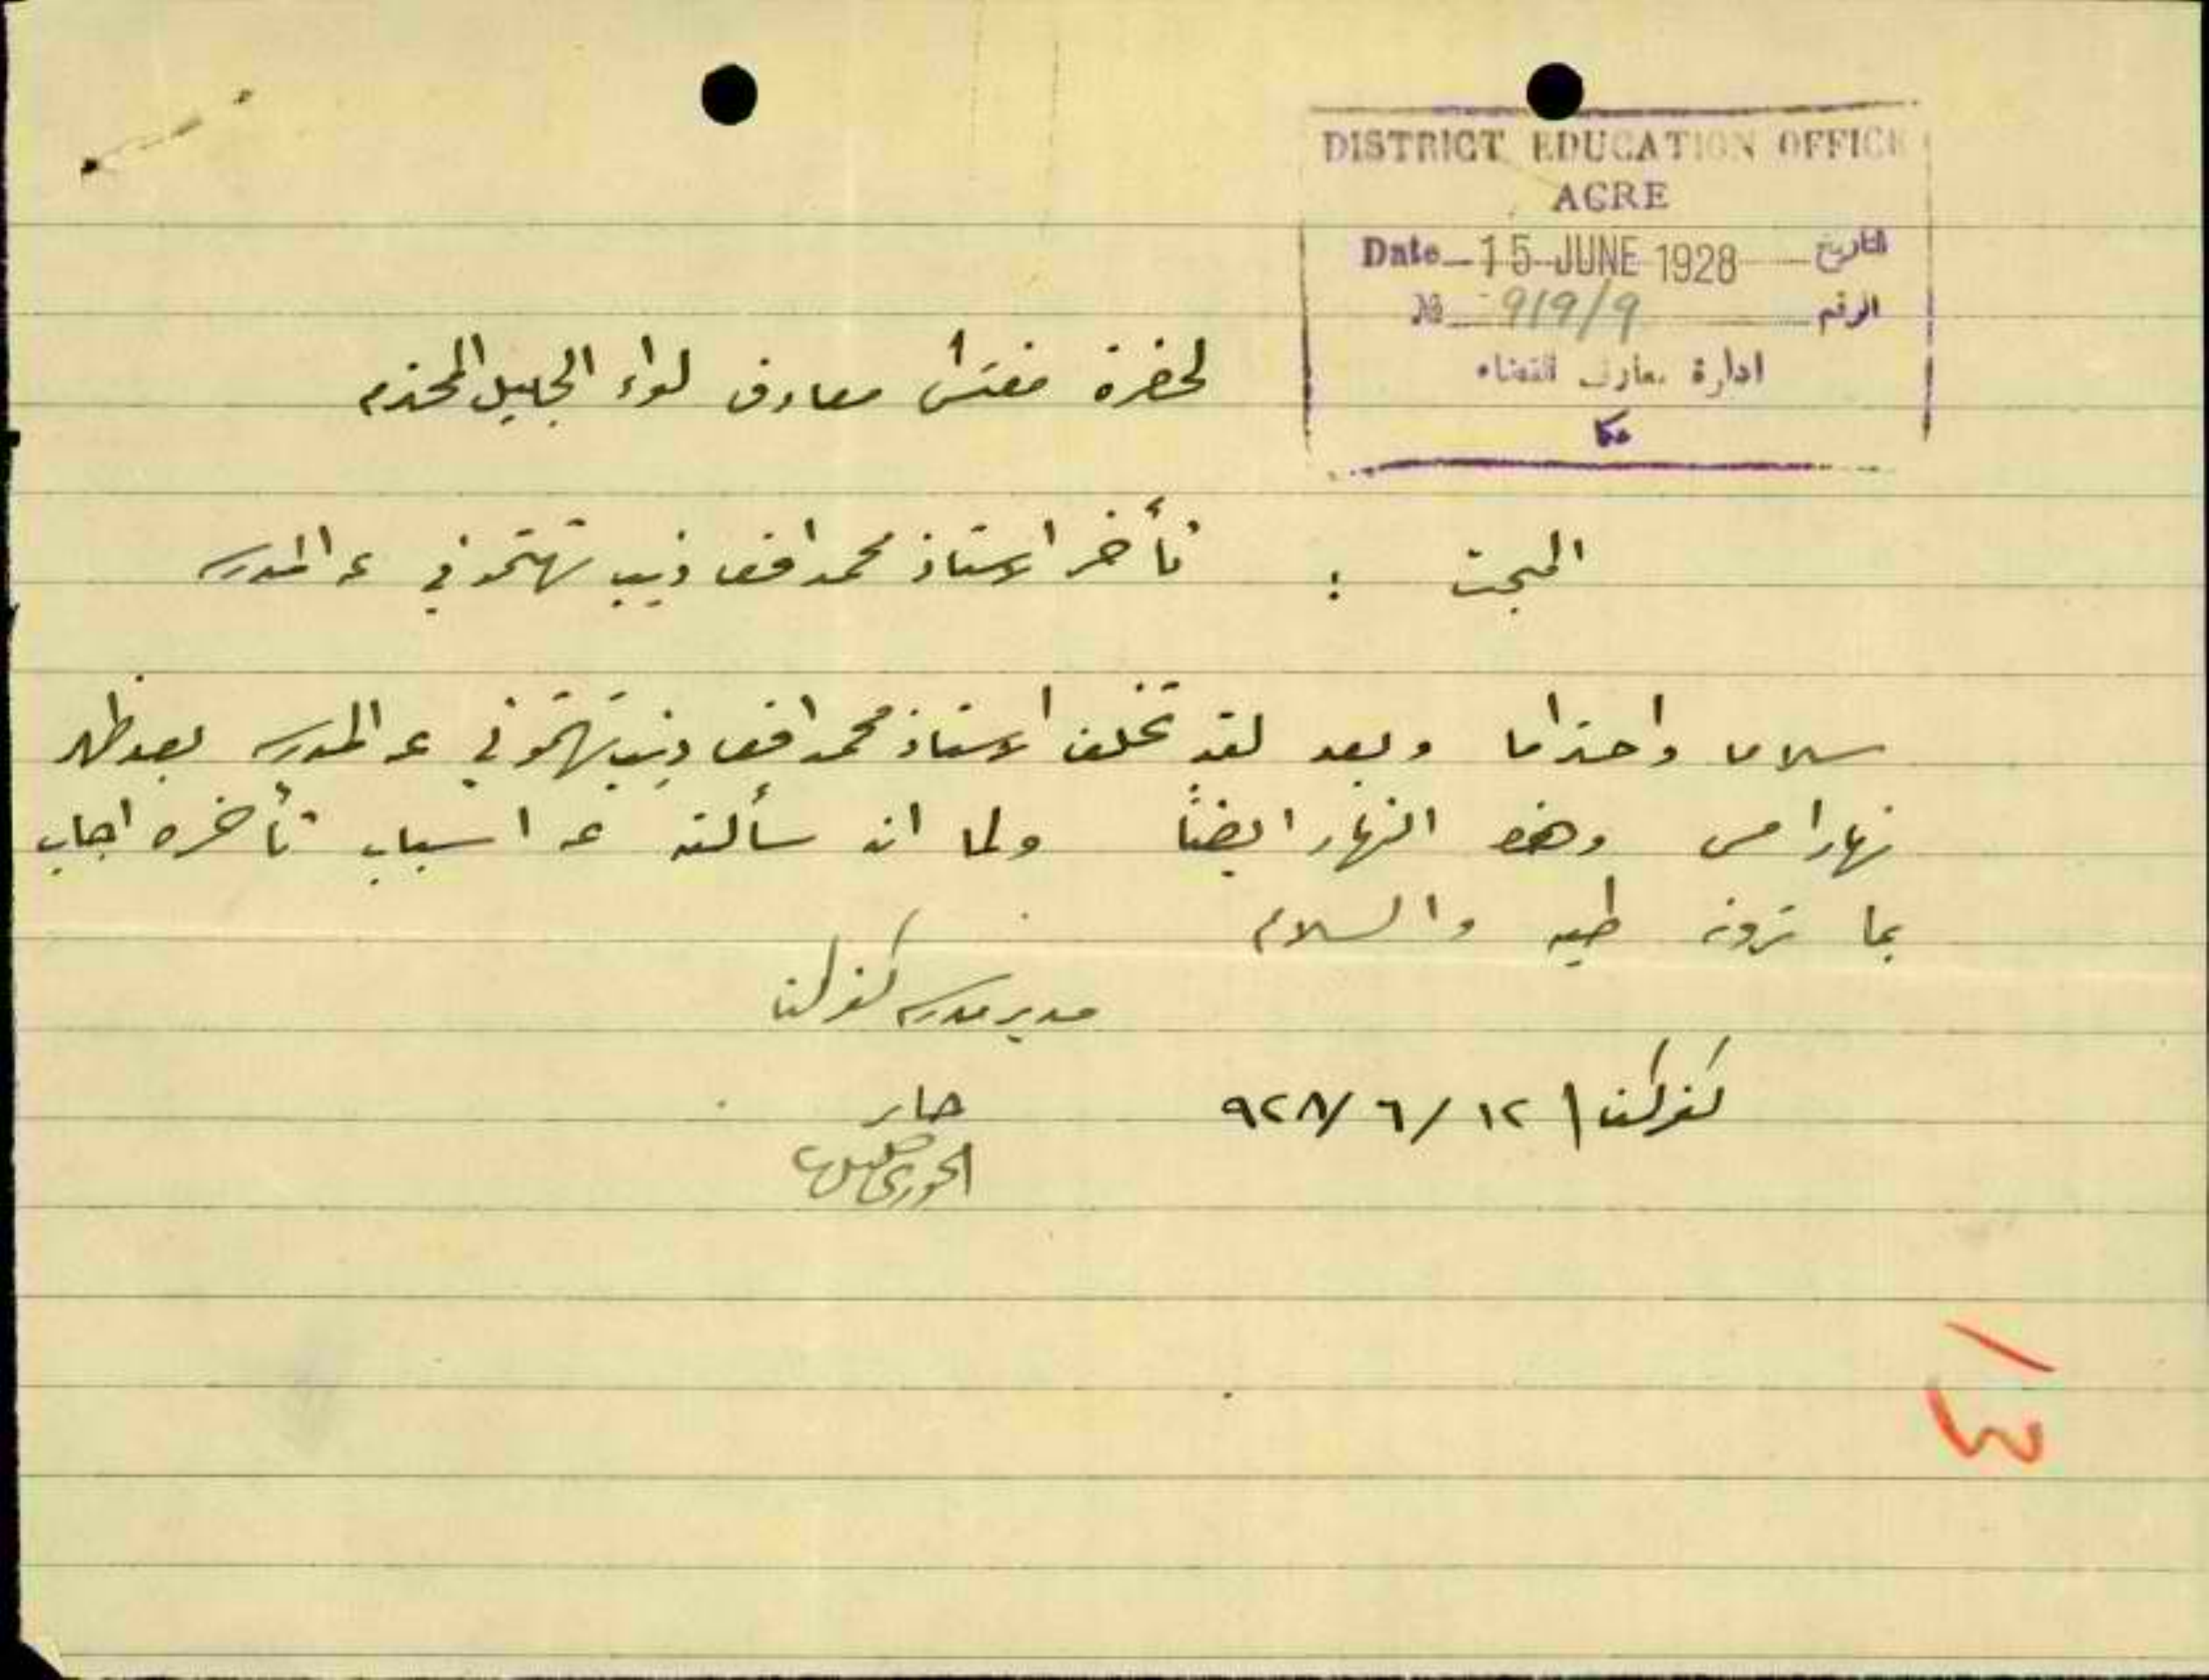 DISTRICT EDUCATION OFFICE
ACRE
Date 15 JUNE 1928 التاريخ
№ 919/9 الرقم
ادارة معارف القضاء
عكا
لحضرة مفتش معارف لواء الجليل المحترم
المبحث : تأخر الاستاذ محمد افندي تهتموني عن المدرسه
سلاما واحتراما وبعد لقد تخلف الاستاذ محمد افندي تهتموني عن المدرسه بعد ظهر
نهار امس وهذا النهار ايضاً ولما ان سألته عن اسباب تأخره اجاب
بما ترونه طيه والسلام
مدير مدرسه كفركنا
كفركنا ١٢/ ٦/ ٩٢٨
الخوري
13